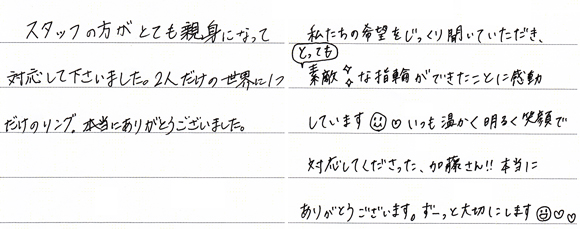 スタッフの方がとても親身になって
対応して下さいました。2人だけの世界に1つ
だけのリング。本当にありがとうございました。
私たちの希望をじっくり聞いていただき、
とっても
素敵な指輪ができたことに感動
しています☺♡いつも温かく明るく笑顔で
対応してくださった、加藤さん!!本当に
ありがとうございます。ずーっと大切にします☺♡♡